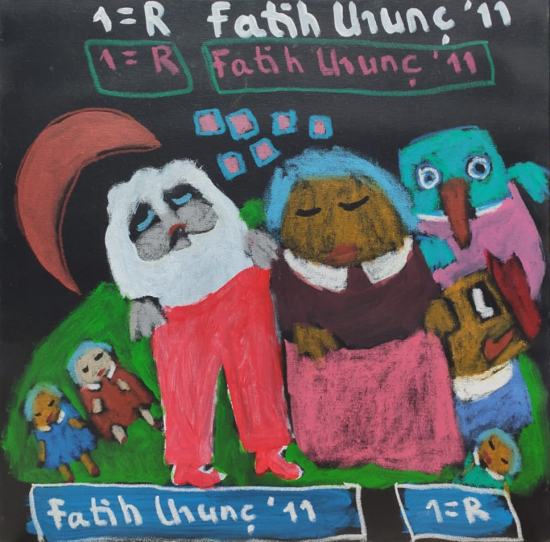 1=R Fatih Urunç '11
1=R Fatih Urunç '11
Fatih Urunç '11 1=R